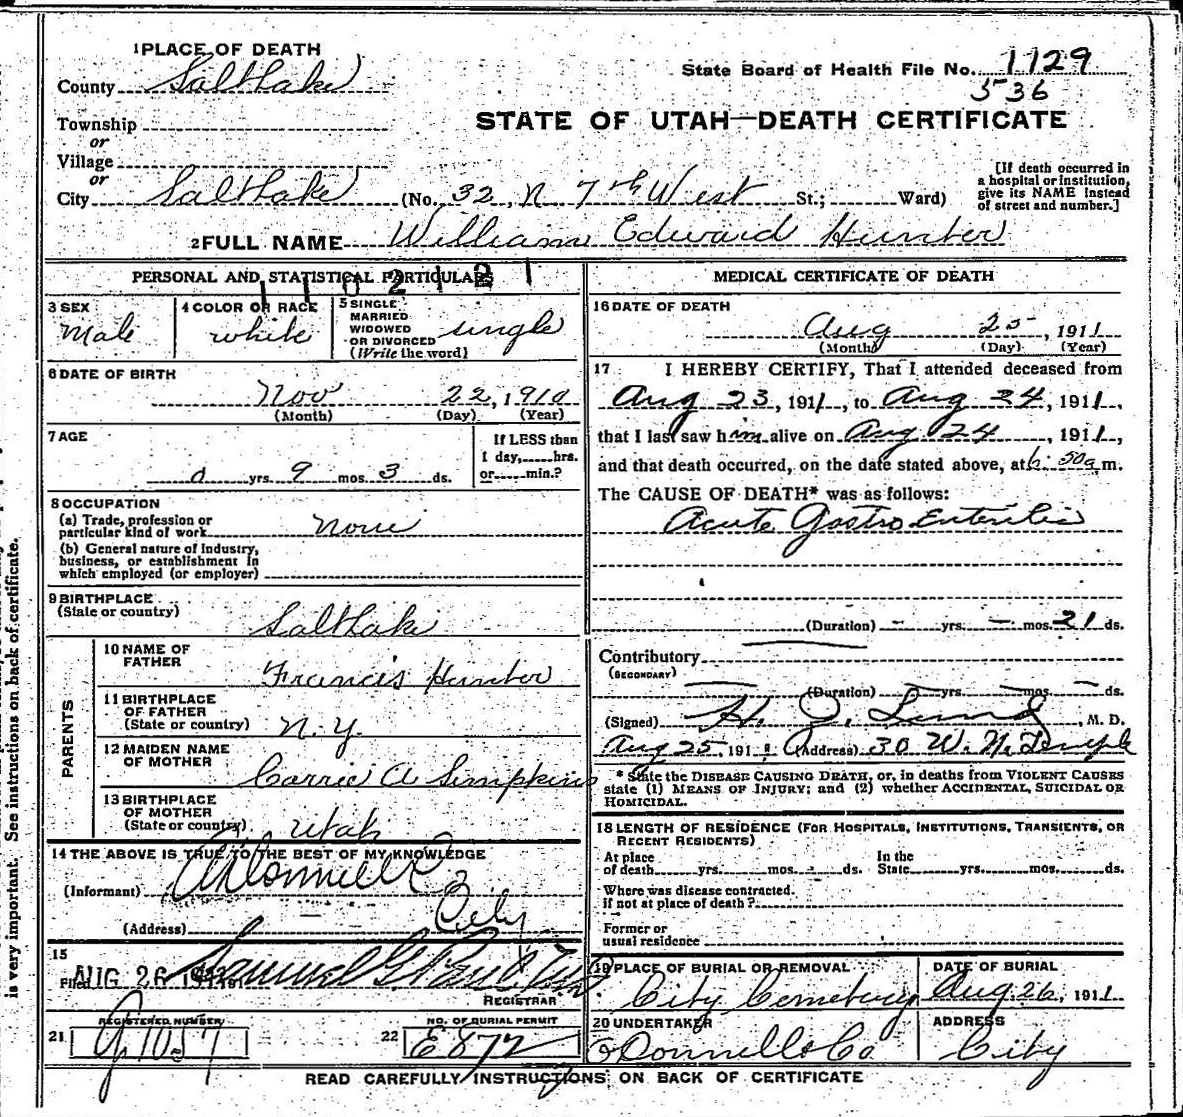 1 PLACE OF DEATH
County Salt Lake
State Board of Health File No. 1129
536
Township
or
STATE OF UTAH—DEATH CERTIFICATE
Village
or
City Salt Lake (No. 32, N 7th West St.; Ward)
[If death occurred in a hospital or institution, give its NAME instead of street and number.]
2 FULL NAME William Edward Hunter
PERSONAL AND STATISTICAL PARTICULARS
1102121
3 SEX
Male
4 COLOR OR RACE
white
5 SINGLE MARRIED WIDOWED OR DIVORCED (Write the word)
single
6 DATE OF BIRTH
Nov 22, 1910
(Month) (Day) (Year)
7 AGE
0 yrs. 9 mos. 3 ds.
If LESS than 1 day, hrs. or min.?
8 OCCUPATION
(a) Trade, profession or particular kind of work None
(b) General nature of industry, business, or establishment in which employed (or employer)
9 BIRTHPLACE
(State or country) Salt Lake
PARENTS
10 NAME OF FATHER Francis Hunter
11 BIRTHPLACE OF FATHER (State or country) N.Y.
12 MAIDEN NAME OF MOTHER Carrie A Simpkins
13 BIRTHPLACE OF MOTHER (State or country) Utah
14 THE ABOVE IS TRUE TO THE BEST OF MY KNOWLEDGE
(Informant)
(Address) City
15
Filed AUG 26 1911 Samuel G. Paul
REGISTRAR
REGISTERED NUMBER
21 G 1057
NO. OF BURIAL PERMIT
22 E 872
MEDICAL CERTIFICATE OF DEATH
16 DATE OF DEATH
Aug 25, 1911
(Month) (Day) (Year)
17 I HEREBY CERTIFY, That I attended deceased from
Aug 23, 1911, to Aug 24, 1911,
that I last saw him alive on Aug 24, 1911,
and that death occurred, on the date stated above, at 6:50 a.m.
The CAUSE OF DEATH* was as follows:
Acute Gastro Enteritis
(Duration) – yrs. – mos. 21 ds.
Contributory
(SECONDARY)
(Duration) – yrs. – mos. – ds.
(Signed) H. J. Lund, M. D.
Aug 25, 191 (Address) 30 W. N. Temple
* State the DISEASE CAUSING DEATH, or, in deaths from VIOLENT CAUSES state (1) MEANS OF INJURY; and (2) whether ACCIDENTAL, SUICIDAL OR HOMICIDAL.
18 LENGTH OF RESIDENCE (FOR HOSPITALS, INSTITUTIONS, TRANSIENTS, OR RECENT RESIDENTS)
At place of death yrs. mos. ds. In the State yrs. mos. ds.
Where was disease contracted.
If not at place of death?
Former or usual residence
19 PLACE OF BURIAL OR REMOVAL
City Cemetery
DATE OF BURIAL
Aug 26, 1911
20 UNDERTAKER
O'Donnell & Co
ADDRESS
City
READ CAREFULLY INSTRUCTIONS ON BACK OF CERTIFICATE
is very important. See instructions on back of certificate.